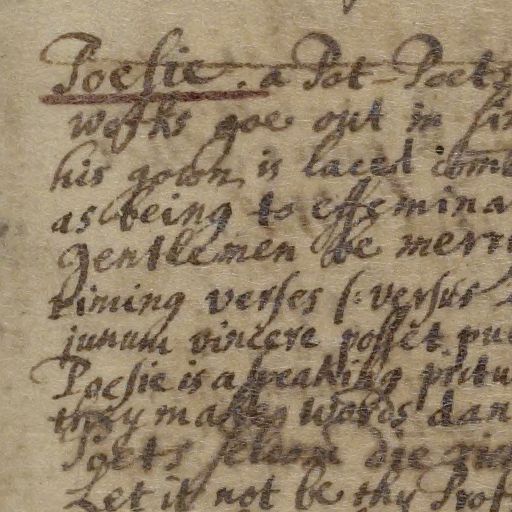 Poesie. a Pot-Poets
works goe out in sin
his gown is laced comb
as being to effemina
Gentlemen be merr
riming verses (: versus
junum vincere posset pue
Poesie is a speaking pictu
they make words dan
Poets seldom die ric
Let it not be thy Prof